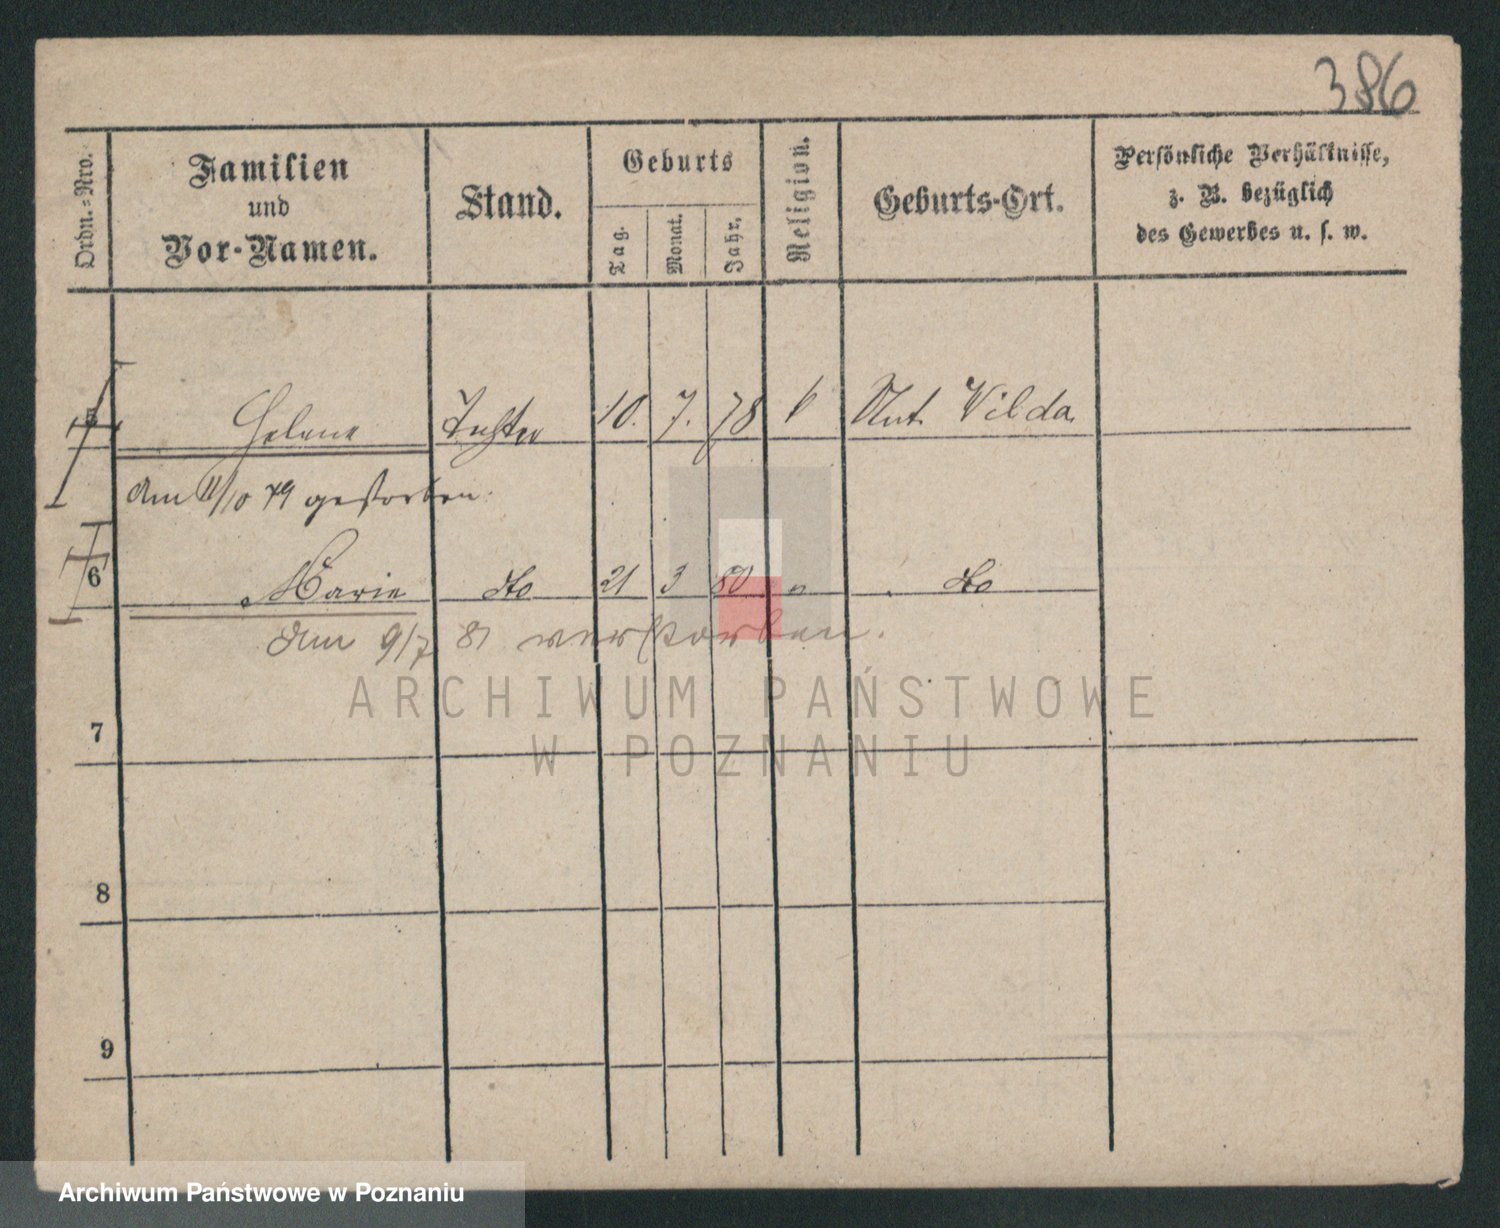 386
Ordn.-Nro.
Familien
und
Vor-Namen.
Stand.
Geburts
Tag.
Monat.
Jahr.
Religion.
Geburts-Ort.
Persönliche Verhältnisse,
z. B. bezüglich
des Gewerbes u. s. w.
5 Helene Tochter 10. 7. 78 k Unt. Wilda
Am 11/10 79 gestorben.
6 Marie dto 21 3 80 " dto
Am 9/7 81 verstorben.
ARCHIWUM PAŃSTWOWE
W POZNANIU
7
8
9
Archiwum Państwowe w Poznaniu